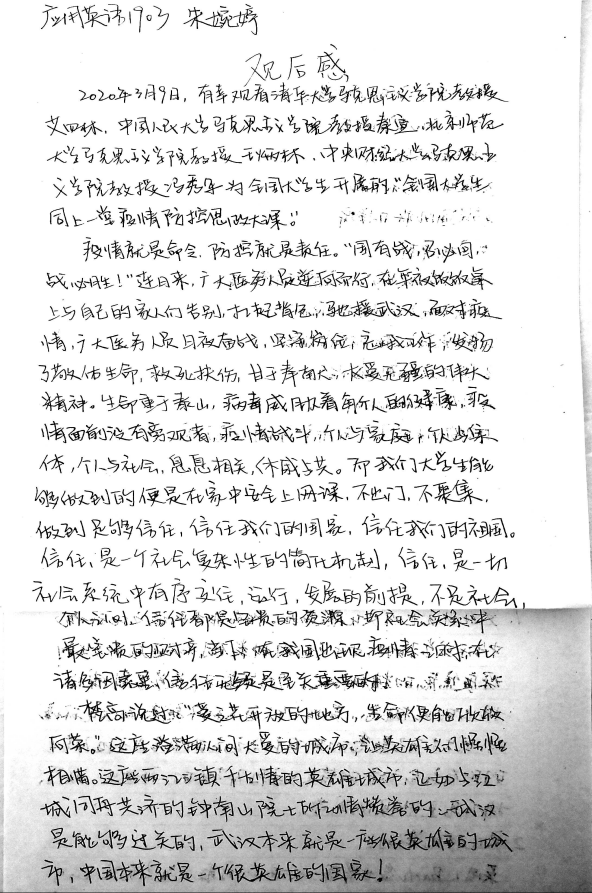 应用英语1903 朱婉婷
观后感
2020年3月9日，有幸观看清华大学马克思主义学院教授
艾四林，中国人民大学马克思主义学院教授秦宣，北京师范
大学马克思主义学院教授王炳林，中央财经大学马克思主
义学院教授冯秀军为全国大学生开展的“全国大学生
同上一堂疫情防控思政大课。”
疫情就是命令，防控就是责任。“国有战，召必回，
战必胜！”连日来，广大医务人员逆向而行，在车
上与自己的家人们告别，扛起背包，驰援武汉，面对疫
情，广大医务人员日夜奋战，坚守岗位，忘我工作，发扬
了敬佑生命，救死扶伤，甘于奉献，大爱无疆的伟大
精神。生命重于泰山，病毒威胁着每个人的健康，疫
情面前没有旁观者，疫情战斗，个人与家庭，个人与集
体，个人与社会，息息相关，休戚与共。而我们大学生能
够做到的便是在家中安全上网课，不出门，不聚集，
做到足够信任，信任我们的国家，信任我们的祖国。
信任，是一个社会复杂性的简化机制，信任，是一切
社会系统中有序交往，运行，发展的前提，不是社会，
信任都是宝贵的资源，
最宝贵的 我国出现疫情之时，在
诸多因素里，信任无疑是至关重要的。
梵高说过：“爱之花开放的地方，生命便能欣欣
向荣。”这座澄满人间大爱的城市，让英雄们惺惺
相惜。这座两江三镇千古情的英雄城市，正如与江
城同舟共济的钟南山院士所动情赞誉的：武汉
是能够过关的，武汉本来就是一座很英雄的城
市，中国本来就是一个很英雄的国家！